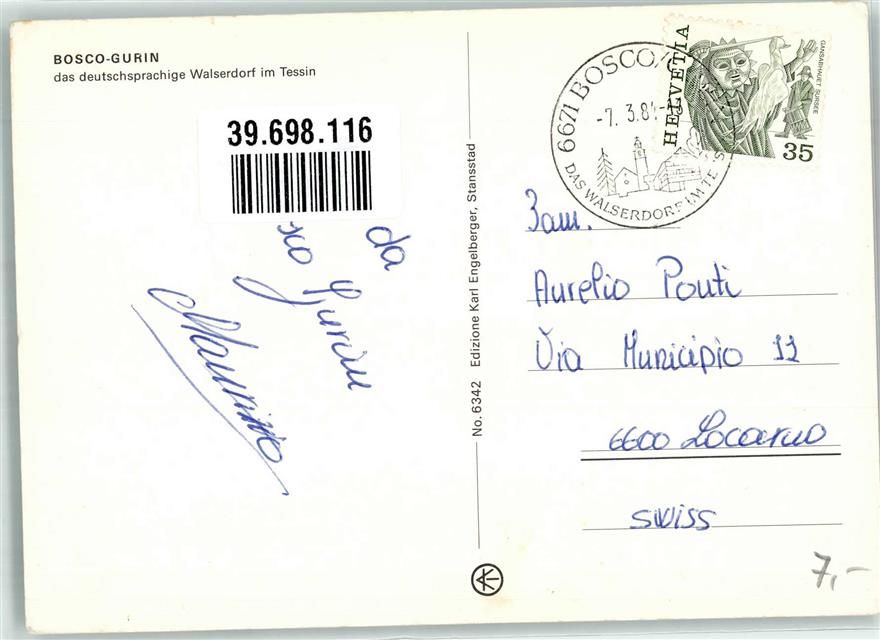 BOSCO-GURIN
das deutschsprachige Walserdorf im Tessin
39.698.116
da
sco Gurin
Maurizio
No. 6342 Edizione Karl Engelberger, Stansstad
6671 BOSCO/G
-7. 3.8
DAS WALSERDORF IM TES
HELVETIA
GANSABHAUET SURSEE
35
Fam.
Aurelio Ponti
Via Municipio 11
6600 Locarno
swiss
7,-